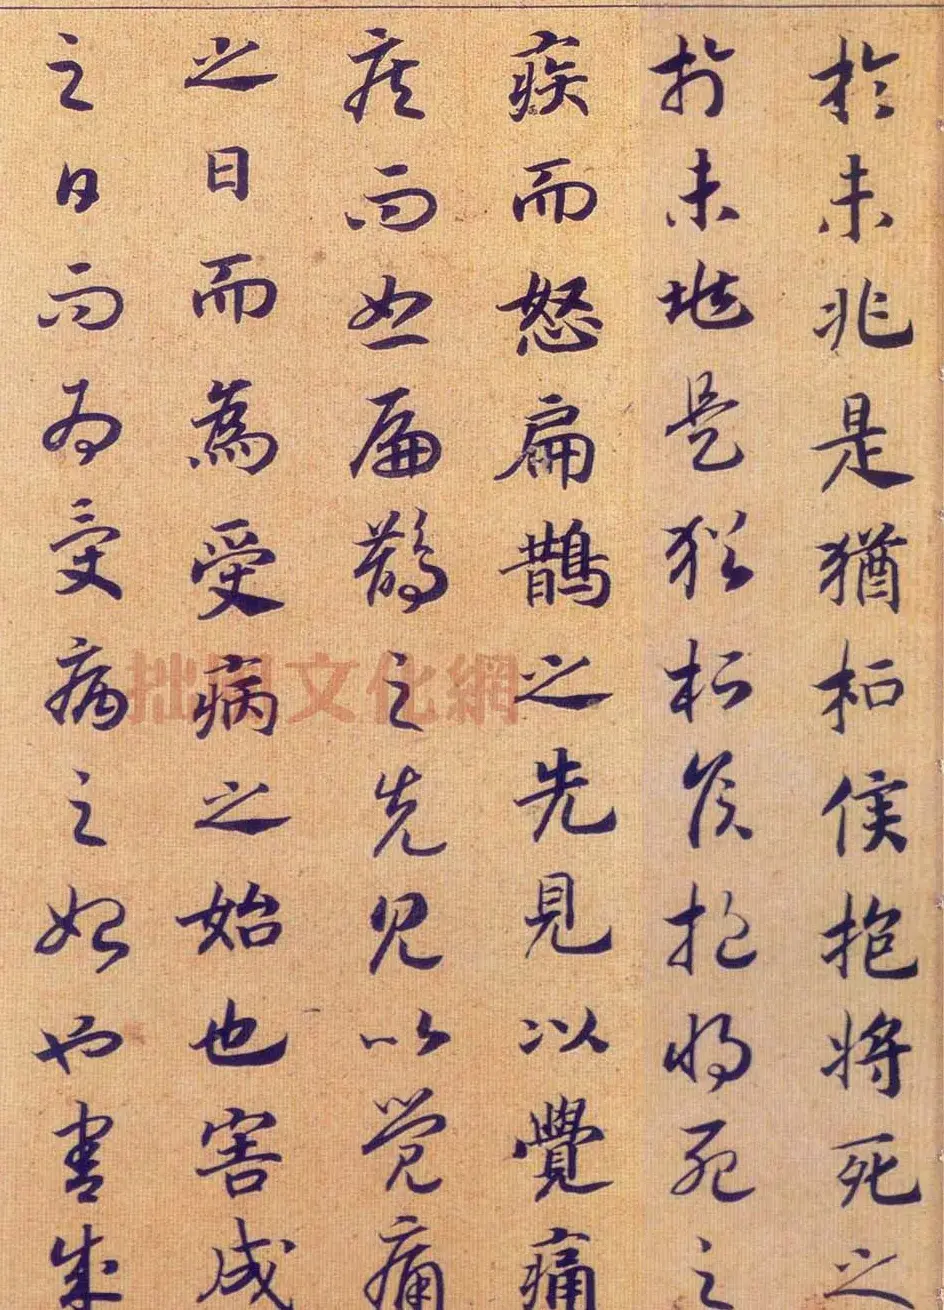 於未兆是猶桓侯抱將死之
於未兆是猶桓侯抱將死之
疾而怒扁鵲之先見以覺痛
疾而怒扁鵲之先見以覺痛
之日而為受病之始也害成
之日而為受病之始也害成
拙風文化網